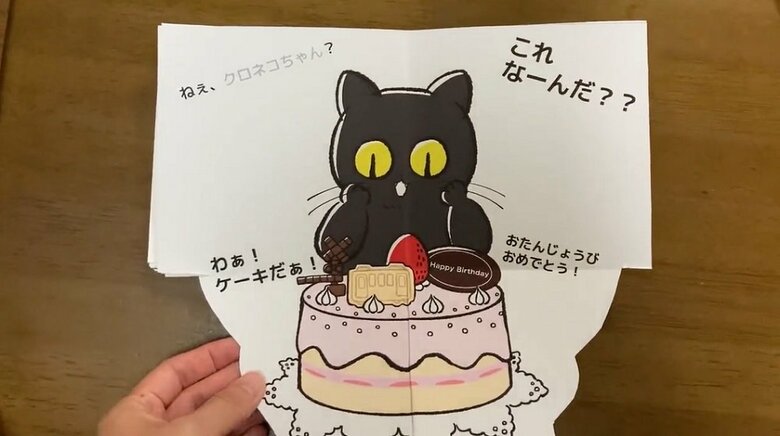 ねぇ、クロネコちゃん?
これ
なーんだ??
わぁ!
ケーキだぁ!
Happy Birthday
おたんじょうび
おめでとう!